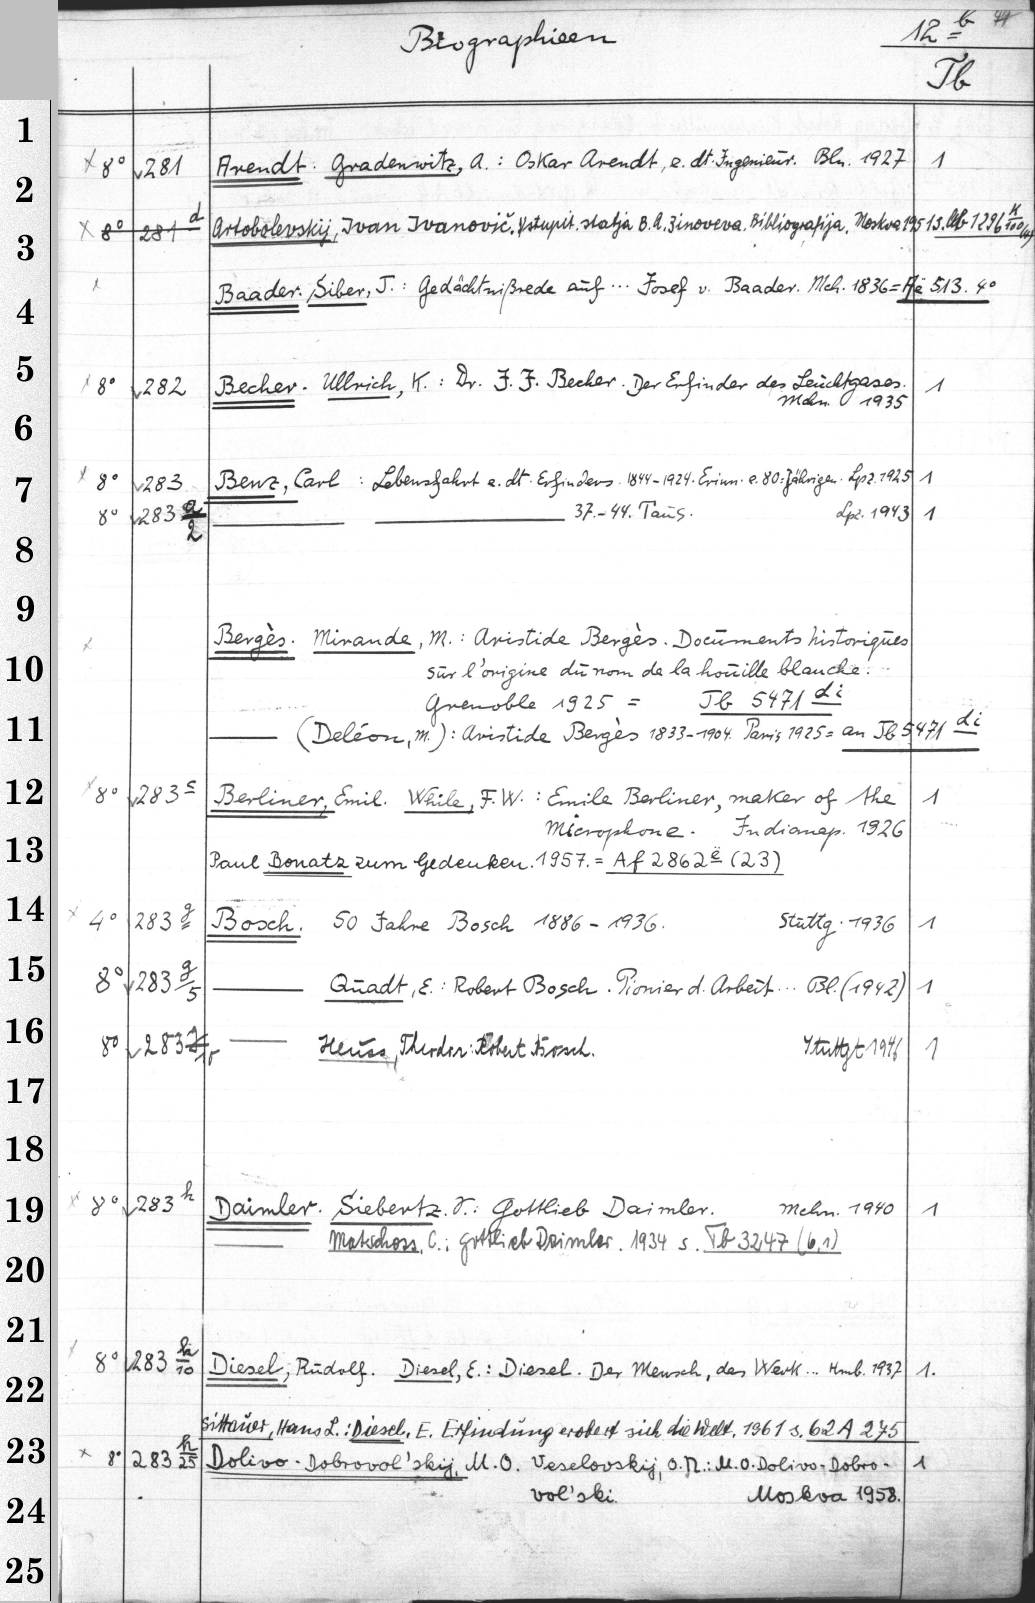 Biographieen
12 b
Tb
1
× 8° 281 Arendt: Gradenwitz, A.: Oskar Arendt, e. dt. Ingenieur. Bln. 1927 1
2
× 8° 281 d Artobolevskij, Ivan Ivanovič. Vstupit. statja B. A. Zinoveva. Bibliografija. Moskva
3
Baader. Siber, T.: Gedächtnißrede auf ... Josef v. Baader. Mch. 1836 = 513. 4°
4
5
× 8° 282 Becher. Ullrich, K.: Dr. J. J. Becher. Der Erfinder des Leuchtgases. 1
Mchn. 1935
6
× 8° 283 Benz, Carl: Lebensfahrt e. dt. Erfinders. 1844-1924. Erinn. e. 80=Jährigen. Lpz. 1925 1
7
8° 283 a/2 37.-44. Taus. Lpz. 1943 1
8
9
Bergès. Mirande, M.: Aristide Bergès. Documents historiques
10
sur l'origine du nom de la houille blanche.
Grenoble 1925 = Tb 5471 di
11
(Deléon, M.): Aristide Bergès 1833-1904. Paris 1925 = an Tb 5471 di
12
× 8° 283 c Berliner, Emil. While, F. W.: Emile Berliner, maker of the 1
Microphone. Indianap. 1926
13
Paul Bonatz zum Gedenken. 1957. = Af 2862 e (23)
14
× 4° 283 g Bosch. 50 Jahre Bosch 1886-1936. Stuttg. 1936 1
15
8° 283 g/5 Quadt, E.: Robert Bosch. Pionier d. Arbeit ... Bl. (1942) 1
16
8° 283 Heuss, Theodor: Robert Bosch. Stuttgt 1946 1
17
18
19
× 8° 283 h Daimler. Siebertz. P.: Gottlieb Daimler. Mchn. 1940 1
Matschoss, C.: Gottlieb Daimler. 1934 s. Tb 3247 (6,1)
20
21
8° 283 10 Diesel, Rudolf. Diesel, E.: Diesel. Der Mensch, das Werk ... Hmb. 1937 1.
22
Sittauer, Hans L.: Diesel, E. Erfindung erobert sich die Welt. 1961 s. 62 A 275
23
× 8° 283 h/25 Dolivo-Dobrovol'skij, M. O. Veselovskij, O. N.: M. O. Dolivo-Dobro- 1
vol'ski. Moskva 1958.
24
25